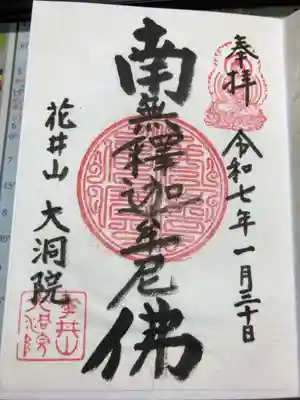 奉拝
令和七年一月三十日
南無釋迦牟尼佛
花井山 大洞院